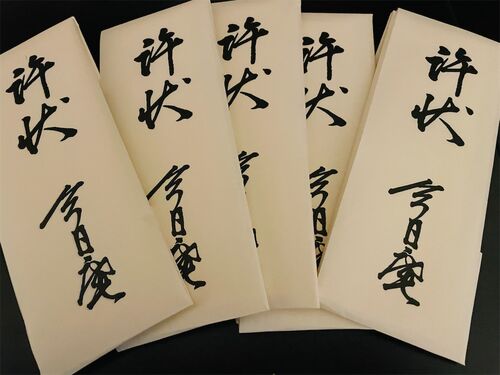 許状
今日庵
許状
今日庵
許状
今日庵
許状
今日庵
許状
今日庵